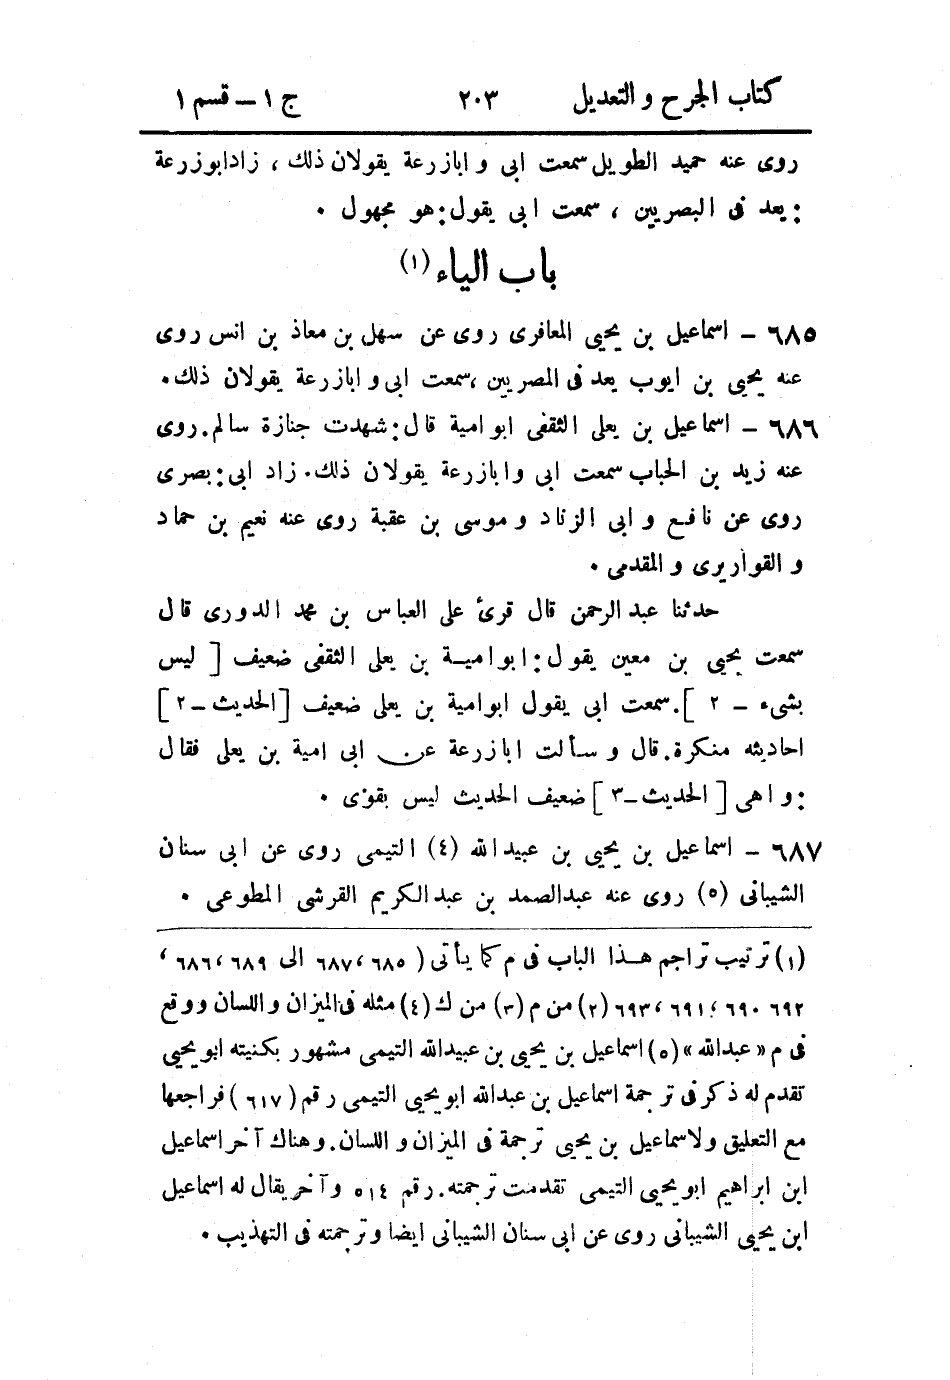 كتاب الجرح والتعديل ٢٠٣ ج ١ – قسم ١
روى عنه حميد الطويل سمعت ابى و ابا زرعة يقولان ذلك ، زاد ابو زرعة
: يعد فى البصريين ، سمعت ابى يقول : هو مجهول .
باب الياء (١)
٦٨٥ – اسماعيل بن يحيى المعافرى روى عن سهل بن معاذ بن انس روى
عنه يحيى بن ايوب يعد فى المصريين ، سمعت ابى و ابا زرعة يقولان ذلك .
٦٨٦ – اسماعيل بن يعلى الثقفى ابو امية قال : شهدت جنازة سالم . روى
عنه زيد بن الحباب سمعت ابى وابا زرعة يقولان ذلك . زاد ابى : بصرى
روى عن نافع و ابى الزناد و موسى بن عقبة روى عنه نعيم بن حماد
و القواريرى و المقدمى .
حدثنا عبد الرحمن قال قرئ على العباس بن محمد الدورى قال
سمعت يحيى بن معين يقول : ابو امية بن يعلى الثقفى ضعيف [ ليس
بشىء – ٢ ] . سمعت ابى يقول ابو امية بن يعلى ضعيف [ الحديث – ٢ ]
احاديثه منكرة . قال و سألت ابا زرعة عن ابى امية بن يعلى فقال
: و اهى [ الحديث – ٣ ] ضعيف الحديث ليس بقوى .
٦٨٧ – اسماعيل بن يحيى بن عبيد الله (٤) التيمى روى عن ابى سنان
الشيبانى (٥) روى عنه عبد الصمد بن عبد الكريم القرشى المطوعى .
(١) ترتيب تراجم هذا الباب فى م كما يأتى ( ٦٨٥ ، ٦٨٧ الى ٦٨٩ ، ٦٨٦ ،
٦٩٢ ٦٩٠ ، ٦٩١ ، ٦٩٣ (٢) من م (٣) من ك (٤) مثله فى الميزان و اللسان ووقع
فى م « عبد الله » (٥) اسماعيل بن يحيى بن عبيد الله التيمى مشهور بكنيته ابو يحيى
تقدم له ذكر فى ترجمة اسماعيل بن عبد الله ابو يحيى التيمى رقم ( ٦١٧ ) فراجعها
مع التعليق ولاسماعيل بن يحيى ترجمة فى الميزان و اللسان . وهناك آخر اسماعيل
ابن ابراهيم ابو يحيى التيمى تقدمت ترجمته . رقم ٥١٤ وآخر يقال له اسماعيل
ابن يحيى الشيبانى روى عن ابى سنان الشيبانى ايضا وترجمته فى التهذيب .